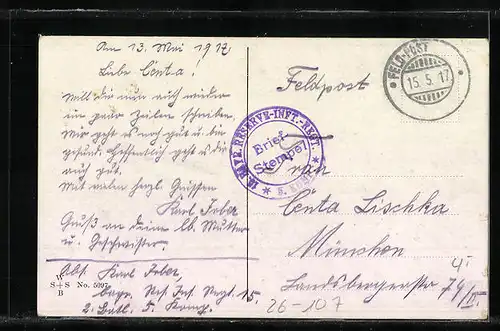 Den 13. Mai 1917
Liebe Centa!
Will dir nun auch wieder
ein paar Zeilen schreiben.
Mir geht es noch gut u. bin
gesund. Hoffentlich geht es dir
auch gut.
Mit vielen herzl. Grüssen
Karl
Gruß an deine lb. Mutter
u. Geschwister.
Abs. Karl
bayr. Res. Inf. Regt. 15.
2. Batl. 5. Komp.
W
S+S No. 5097
B
Feldpost
FELD-POST
15.5.17
BAYR. RESERVE-INFT.-REGT.
Brief
Stempel
Frau
Centa Lischka
München
Landsbergerstr. 79/III
26-107